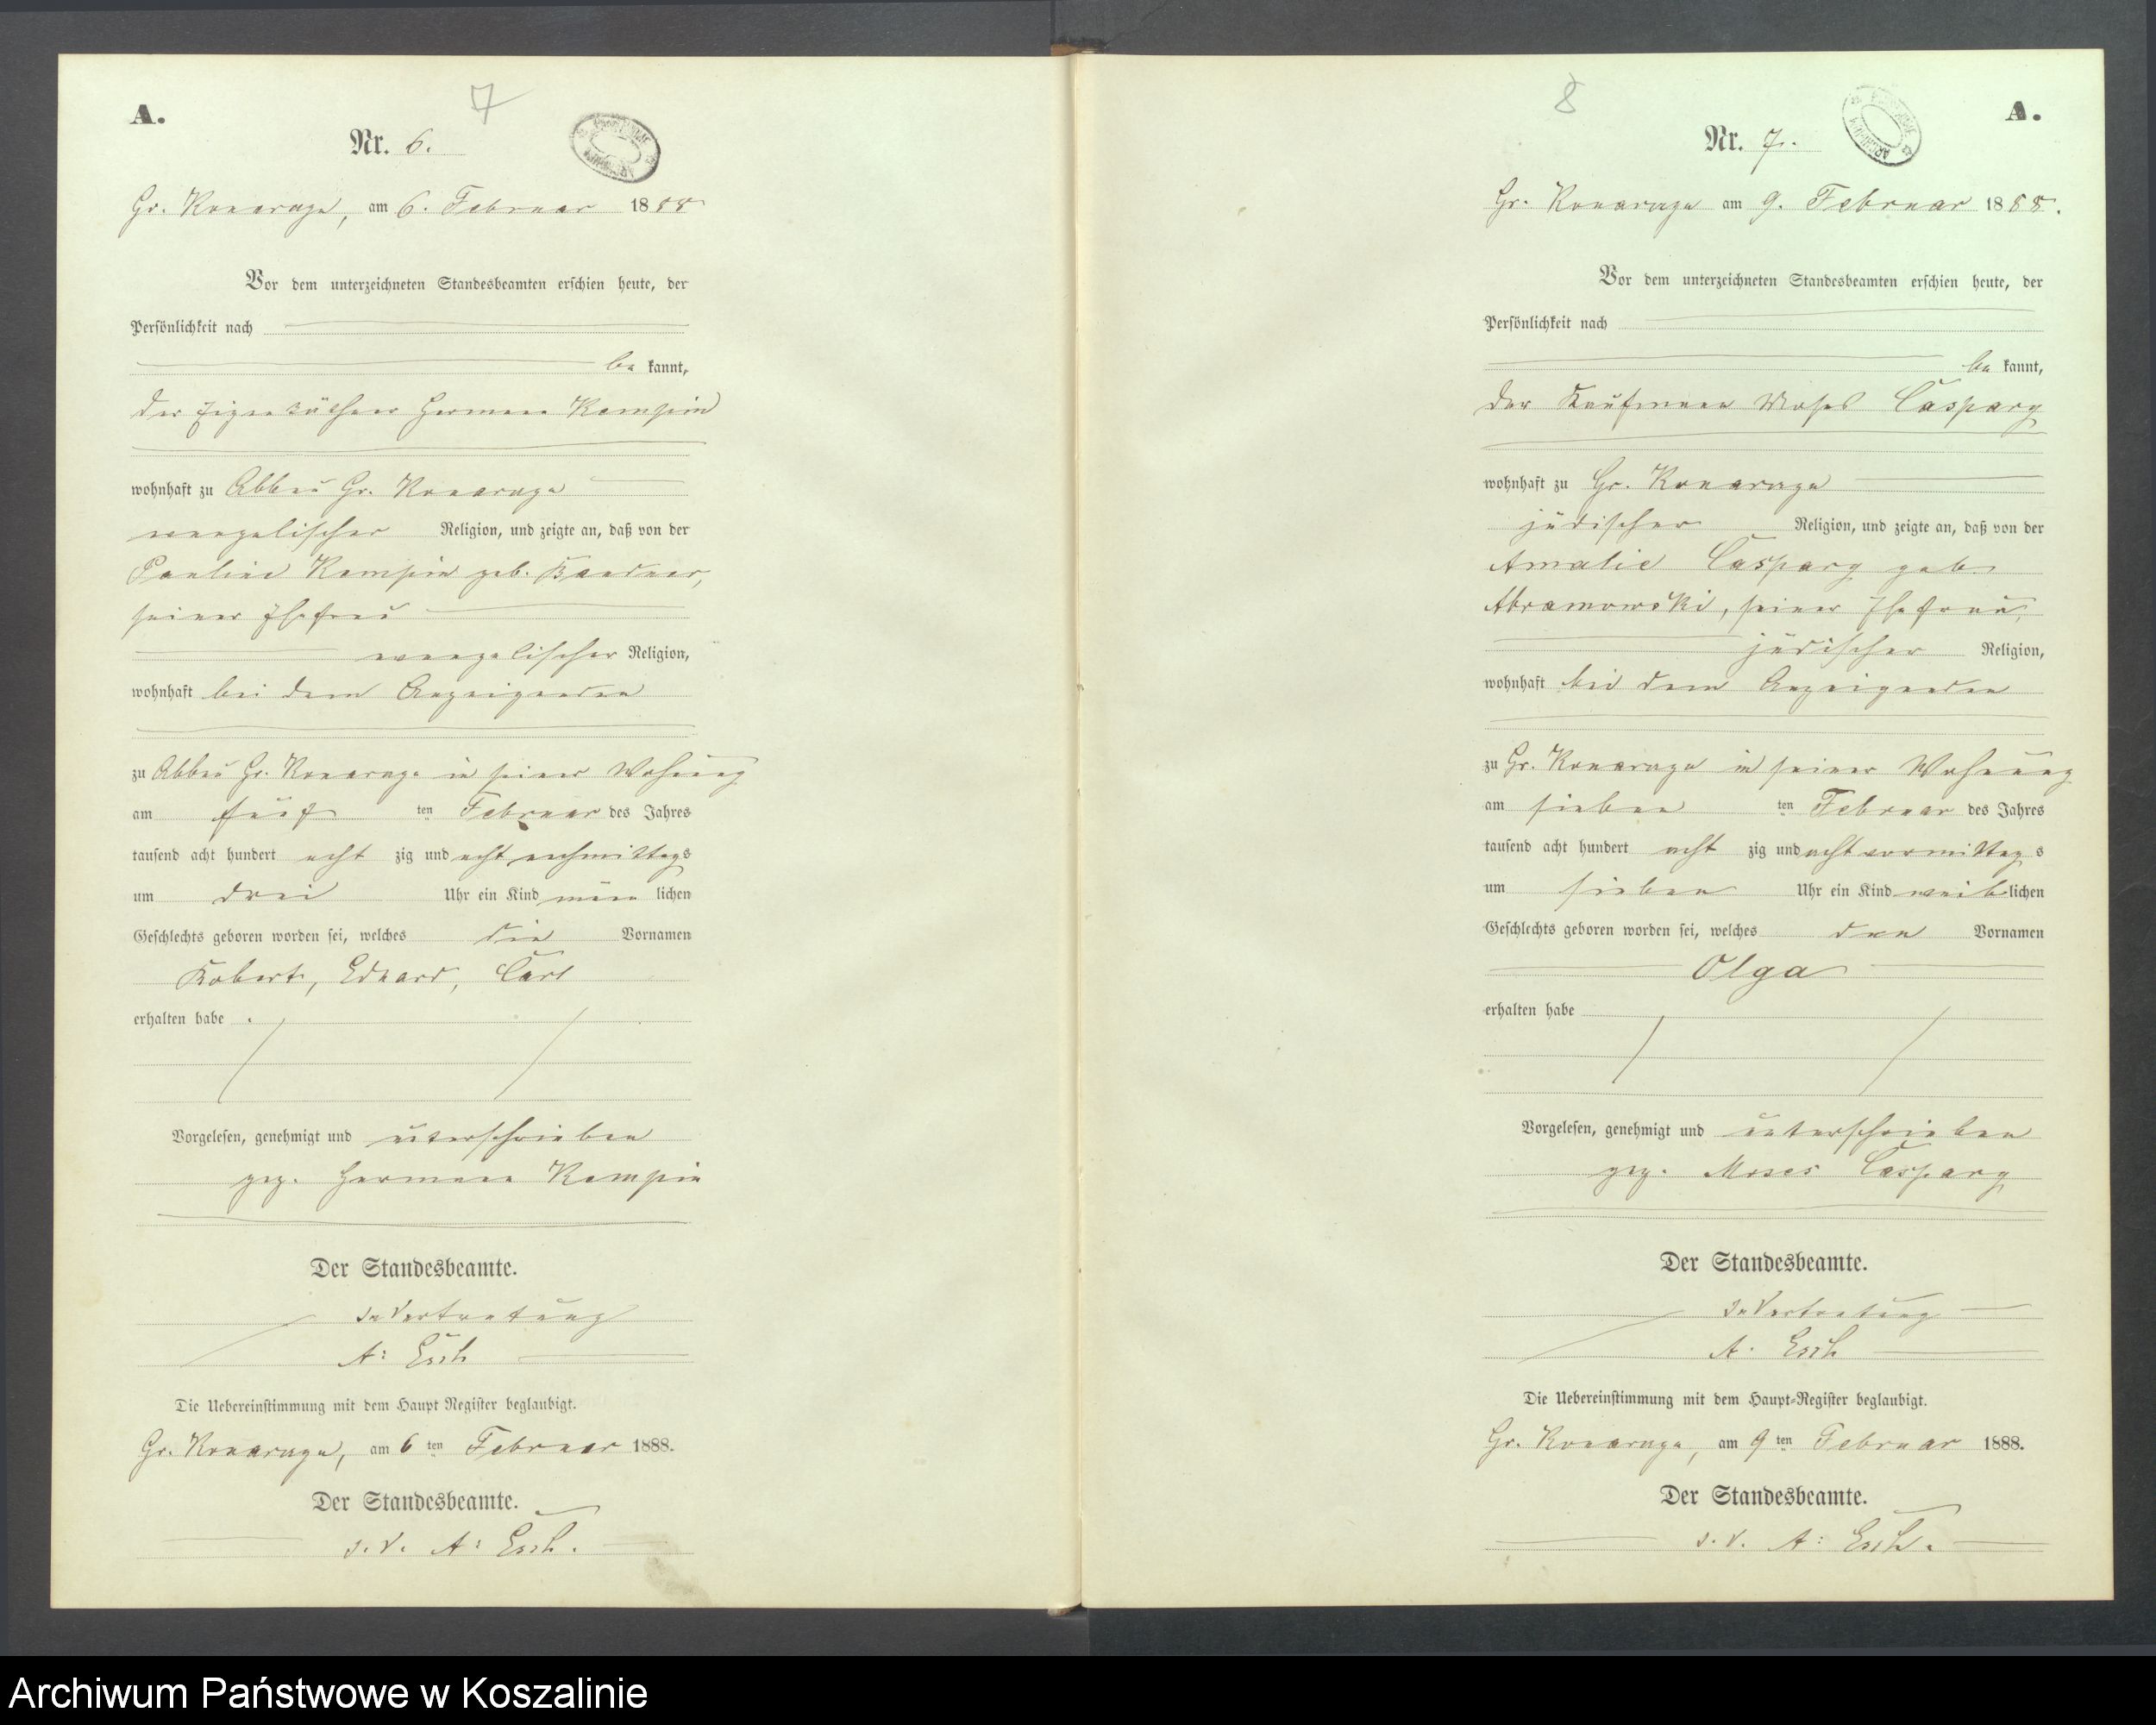 7
A.
Nr. 6.
Gr. Konarzyn, am 6. Februar 1888
Vor dem unterzeichneten Standesbeamten erschien heute, der
Persönlichkeit nach
be kannt,
der Eigenkäthner Hermann Rempin
wohnhaft zu Abbau Gr. Konarzyn
evangelischer Religion, und zeigte an, daß von der
Pauline Rempin geb.
seiner Ehefrau
evangelischer Religion,
wohnhaft bei dem Anzeigenden
zu Abbau Gr. Konarzyn in seiner Wohnung
am fünf ten Februar des Jahres
tausend acht hundert acht zig und acht nachmittags
um drei Uhr ein Kind männ lichen
Geschlechts geboren worden sei, welches die Vornamen
Robert, Eduard, Carl
erhalten habe.
Vorgelesen, genehmigt und unterschrieben
gez. Hermann Rempin
Der Standesbeamte.
In Vertretung
A: Esch
Die Uebereinstimmung mit dem Haupt Register beglaubigt.
Gr. Konarzyn, am 6 ten Februar 1888.
Der Standesbeamte.
I. V. A: Esch.
8
A.
Nr. 7.
Gr. Konarzyn am 9. Februar 1888.
Vor dem unterzeichneten Standesbeamten erschien heute, der
Persönlichkeit nach
be kannt,
der Kaufmann Moses Caspary
wohnhaft zu Gr. Konarzyn
jüdischer Religion, und zeigte an, daß von der
Amalie Caspary geb.
Abramowski, seiner Ehefrau,
jüdischer Religion,
wohnhaft bei dem Anzeigenden
zu Gr. Konarzyn in seiner Wohnung
am sieben ten Februar des Jahres
tausend acht hundert acht zig und acht vormittags
um sieben Uhr ein Kind weib lichen
Geschlechts geboren worden sei, welches den Vornamen
Olga
erhalten habe
Vorgelesen, genehmigt und unterschrieben
gez. Moses Caspary
Der Standesbeamte.
In Vertretung
A. Esch
Die Uebereinstimmung mit dem Haupt-Register beglaubigt.
Gr. Konarzyn, am 9 ten Februar 1888.
Der Standesbeamte.
I. V. A: Esch.
Archiwum Państwowe w Koszalinie